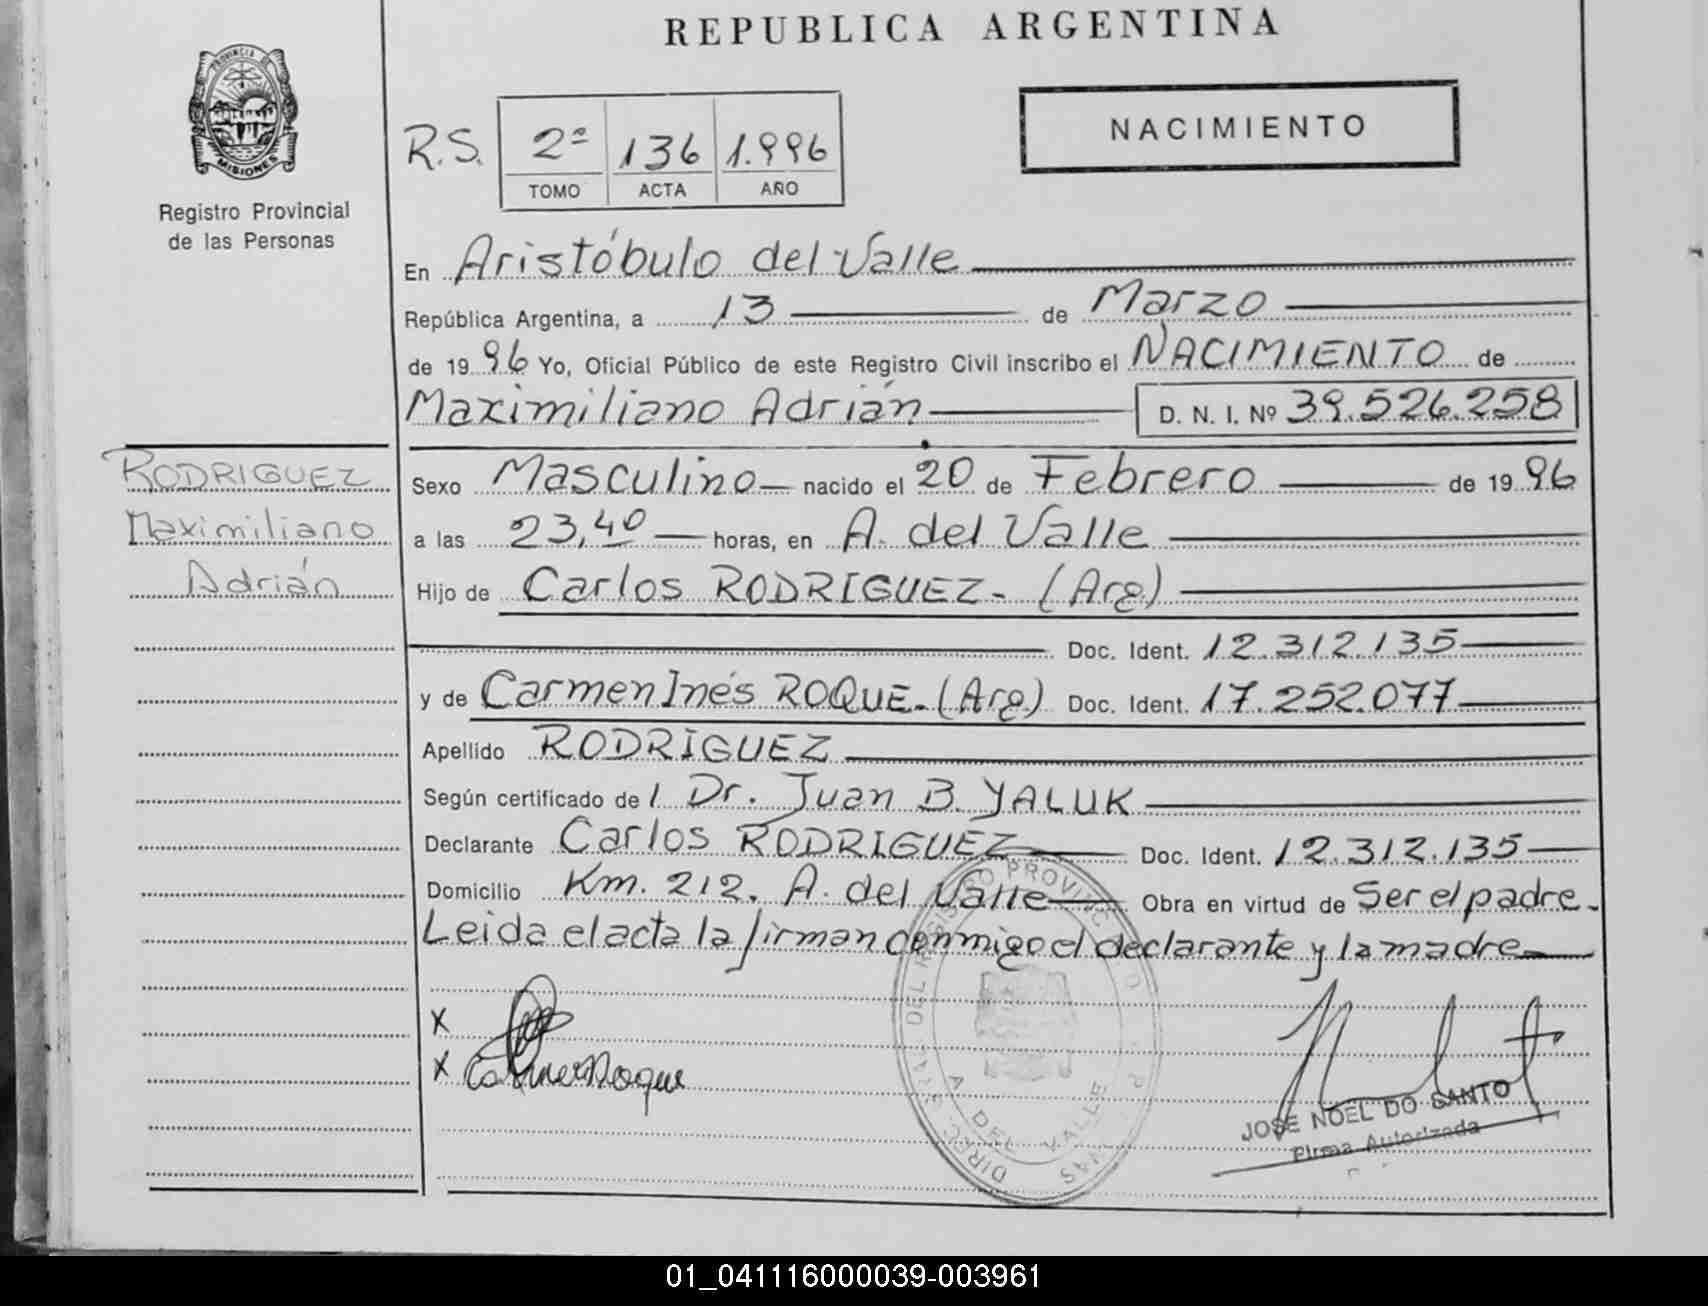 REPUBLICA ARGENTINA
PROVINCIA DE
MISIONES
Registro Provincial
de las Personas
R.S. 2ª 136 1.996
TOMO ACTA AÑO
NACIMIENTO
En Aristóbulo del Valle
República Argentina, a 13 de Marzo
de 1996 Yo, Oficial Público de este Registro Civil inscribo el NACIMIENTO de
Maximiliano Adrián D. N. I. Nº 39.526.258
RODRIGUEZ
Maximiliano
Adrián
Sexo Masculino nacido el 20 de Febrero de 1996
a las 23,40 horas, en A. del Valle
Hijo de Carlos RODRIGUEZ - (Arg)
Doc. Ident. 12.312.135
y de Carmen Inés ROQUE. (Arg.) Doc. Ident. 17.252.077
Apellido RODRIGUEZ
Según certificado de l Dr. Juan B. YALUK
Declarante Carlos RODRIGUEZ Doc. Ident. 12.312.135
Domicilio Km. 212. A. del Valle Obra en virtud de Ser el padre.
Leida el acta la firman conmigo el declarante y la madre
X
X Carmen Roque
A. DEL VALLE
JOSE NOEL DO SANTO
Firma Autorizada
01_041116000039-003961